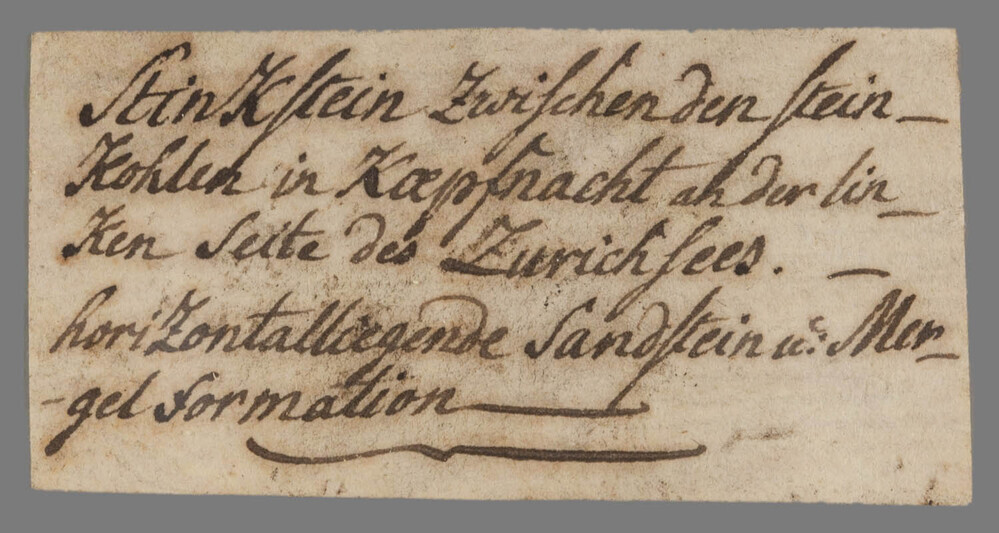 StinKſtein Zwiſchen den ſtein-
Kohlen in Kœpfnacht an der lin-
Ken Seite des Zurichſees. —
horiZontalliegende Sandſtein u: Mer-
-gel formation —